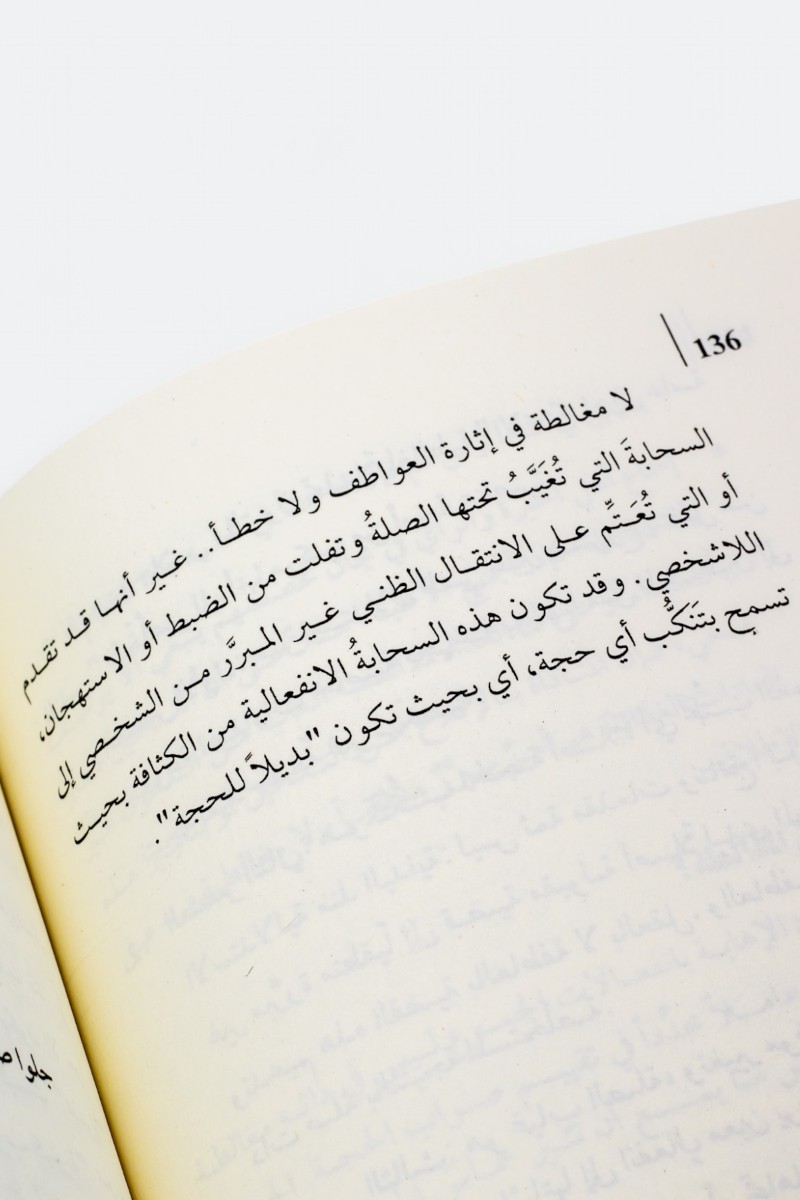 136
لا مغالطة في إثارة العواطف ولا خطأ.. غير أنها قد تقدم
السحابةَ التي تُغَيَّبُ تحتها الصلةُ وتفلت من الضبط أو الاستهجان،
أو التي تُعَتِّم على الانتقال الظني غير المبرَّر من الشخصي إلى
اللاشخصي. وقد تكون هذه السحابةُ الانفعالية من الكثافة بحيث
تسمح بتَنَكُّب أي حجة، أي بحيث تكون "بديلاً للحجة".